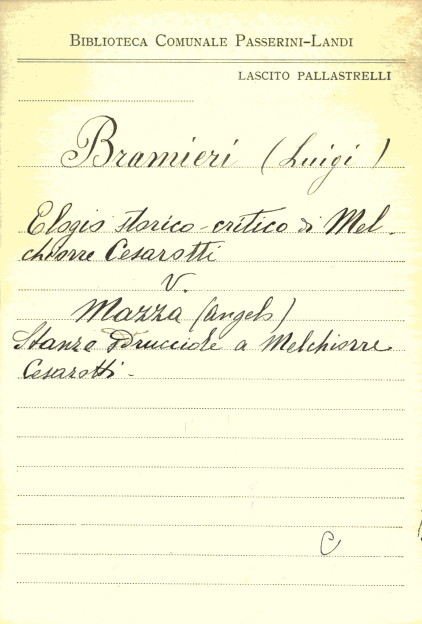 BIBLIOTECA COMUNALE PASSERINI-LANDI
LASCITO PALLASTRELLI
Bramieri (Luigi)
Elogio storico-critico di Mel-
chiorre Cesarotti
V.
Mazza (Angelo)
Stanze sdrucciole a Melchiorre
Cesarotti -
C